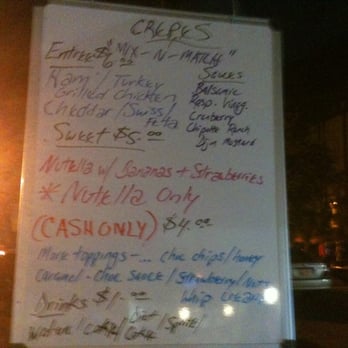 CREPES
Entree $6.00 "MIX-N-MATCH"
Ham/Turkey
Grilled Chicken
Cheddar/Swiss/
Feta
Sauces
Balsamic
Rasp. Ving.
Cranberry
Chipotle Ranch
Dijn Mustard
Sweet $5.00
Nutella w/ Bananas + Strawberries
* Nutella Only
(CASH ONLY) $4.00
More toppings - ... choc chips/honey
Caramel - Choc sauce / Strawberry/Nuts
Whip cream
Drinks $1.00
Water/Coke/Diet Coke/Sprite/